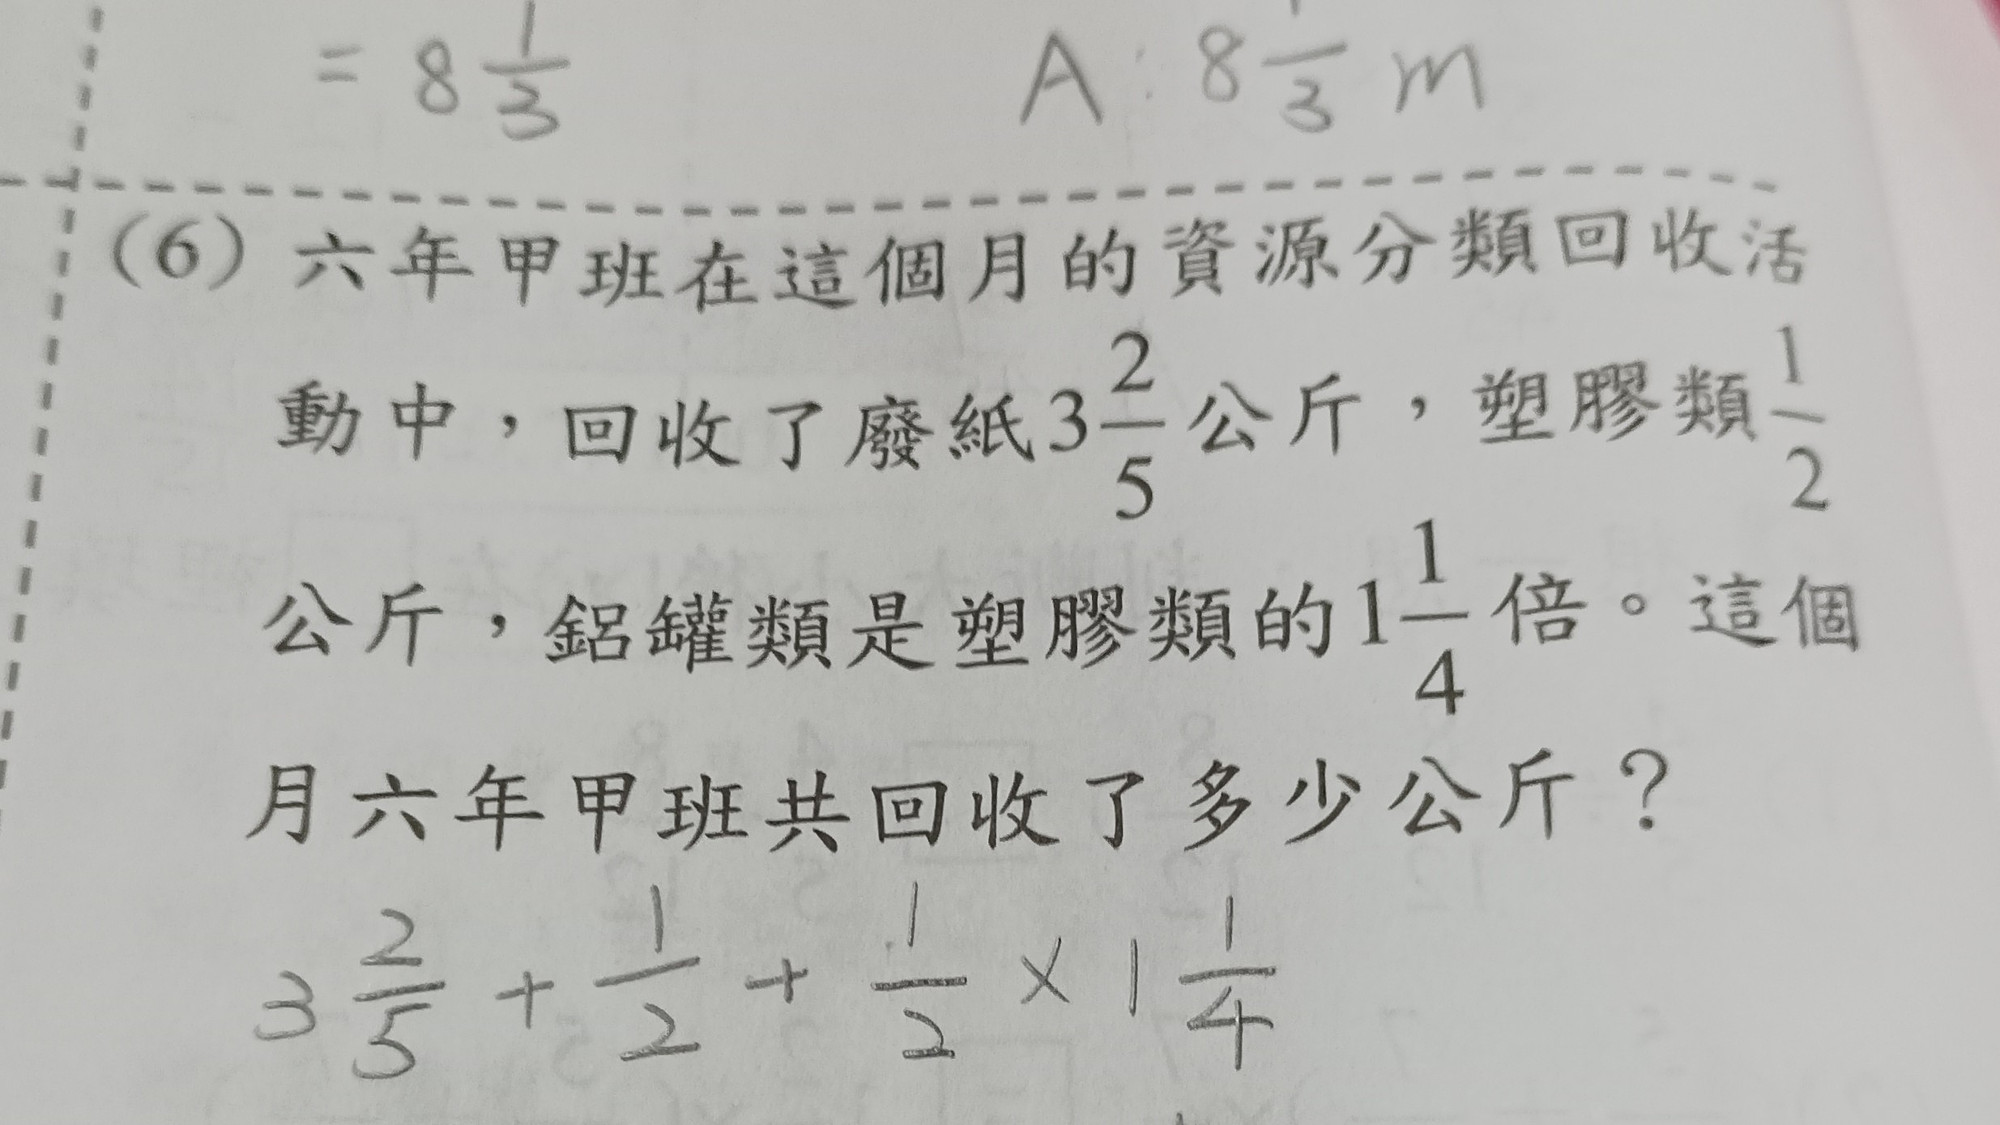 = 8 1/3 A: 8 1/3 m
(6) 六年甲班在這個月的資源分類回收活
動中，回收了廢紙3 2/5 公斤，塑膠類 1/2
公斤，鋁罐類是塑膠類的1 1/4 倍。這個
月六年甲班共回收了多少公斤？
3 2/5 + 1/2 + 1/2 × 1 1/4